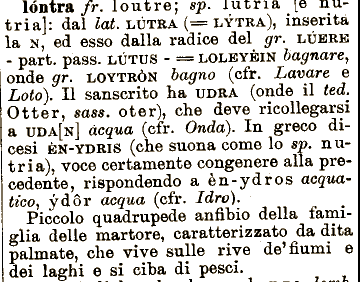 lóntra fr. loutre; sp. lutria [e nu-
tria]: dal lat. LÚTRA (= LÝTRA), inserita
la N, ed esso dalla radice del gr. LÚERE
- part. pass. LÚTUS - = LOLEYÈIN bagnare,
onde gr. LOYTRÒN bagno (cfr. Lavare e
Loto). Il sanscrito ha UDRA (onde il ted.
Otter, sass. oter), che deve ricollegarsi
a UDA[N] acqua (cfr. Onda). In greco di-
cesi ÈN-YDRIS (che suona come lo sp. nu-
tria), voce certamente congenere alla pre-
cedente, rispondendo a èn-ydros acqua-
tico, ýdôr acqua (cfr. Idro).
Piccolo quadrupede anfibio della fami-
glia delle martore, caratterizzato da dita
palmate, che vive sulle rive de'fiumi e
dei laghi e si ciba di pesci.